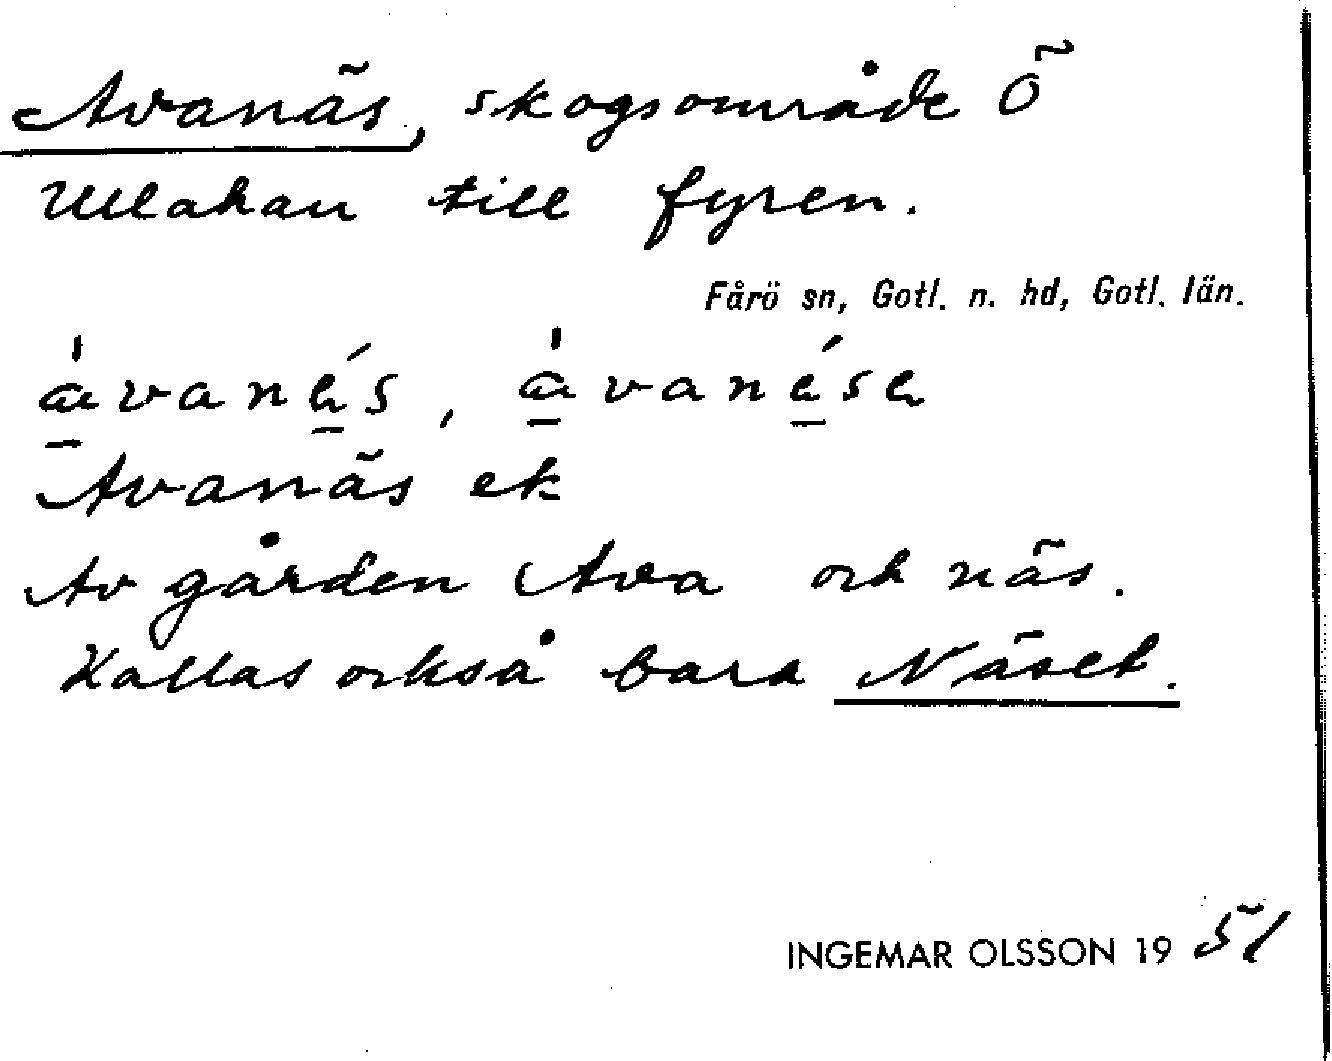 Avanäs, skogsområde Ö
Ullahau till fyren.
Fårö sn, Gotl. n. hd, Gotl. län.
Avanäs ek
Av gården Ava och näs.
Kallas också bara Näset.
INGEMAR OLSSON 19 51